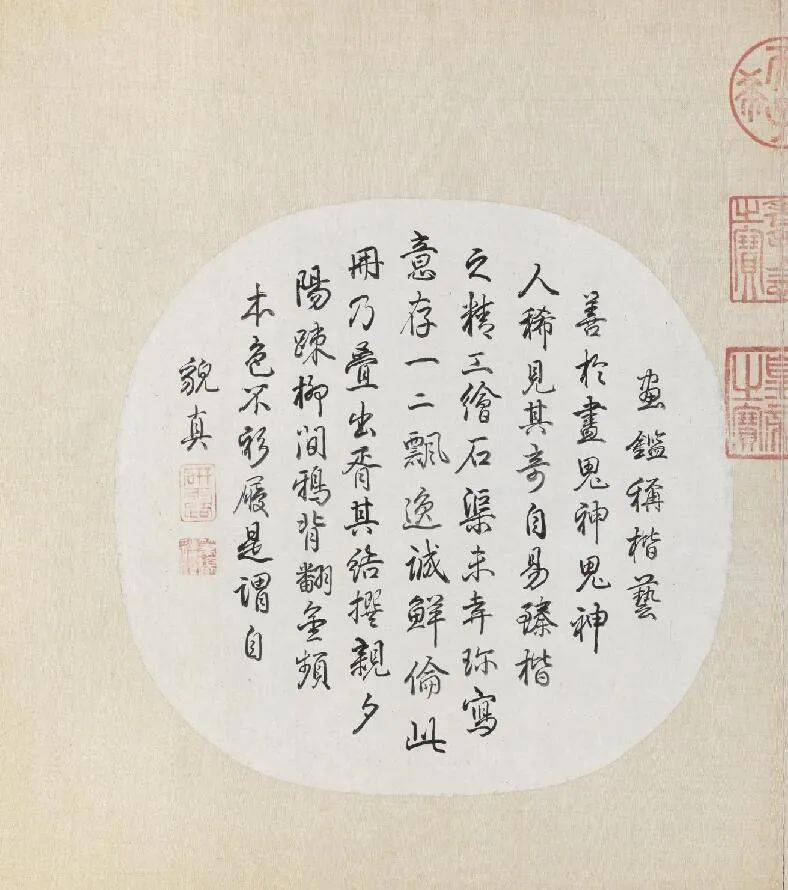 畫鑑稱楷藝
善於畫鬼神鬼神
人稀見其奇自易臻楷
之精工繪石渠未弆珎寫
意存一二飄逸誠鮮倫此
冊乃疊出胥其結撰親夕
陽疎柳間鴉背翻金頻
本色不衫履是謂自
貌真